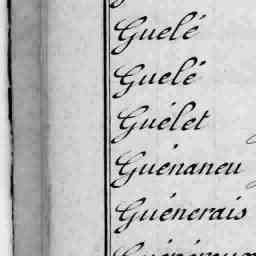 Guelé
Guelé
Guélet
Guénaneu
Guénerais